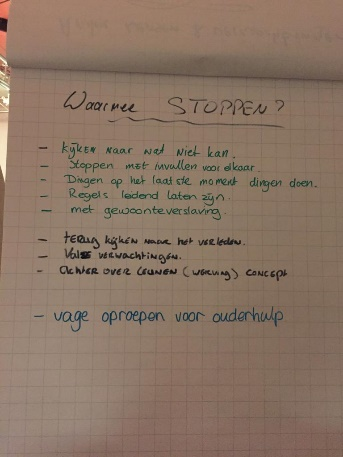 Waarmee STOPPEN?
- Kijken naar wat niet kan.
- Stoppen met invullen voor elkaar.
- Dingen op het laatste moment dingen doen.
- Regels leidend laten zijn.
- met gewoonteverslaving.
- terug kijken naar het verleden.
- verwachtingen.
- achter over leunen (werving) concept
- vage oproepen voor ouderhulp